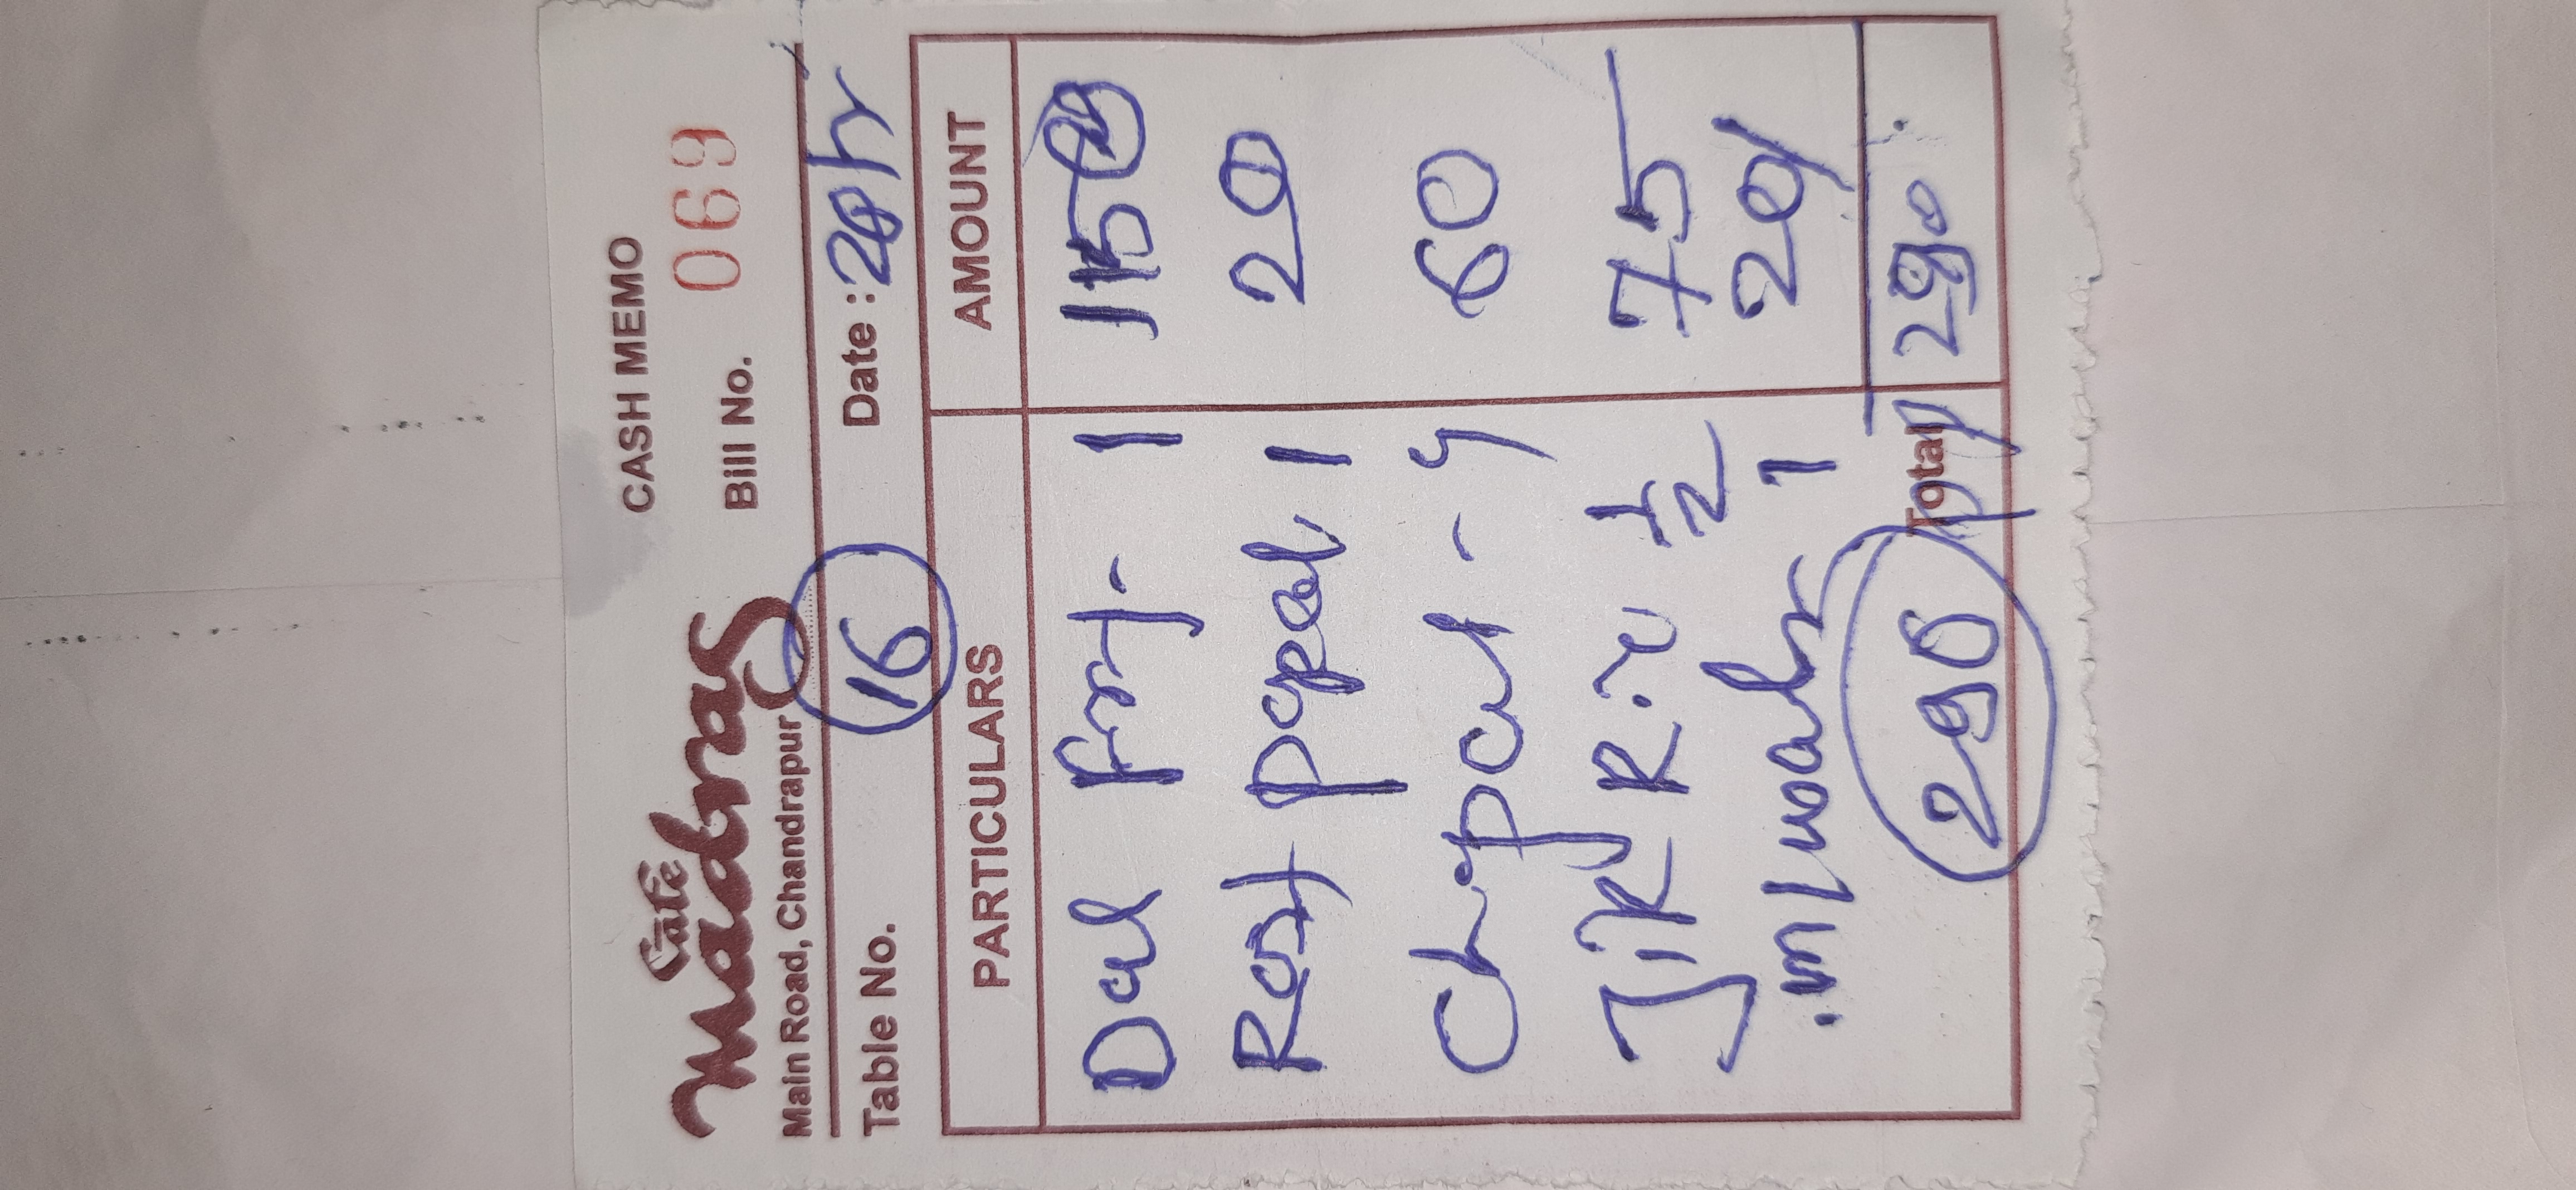 CASH MEMO
Cafe Madras
Bill No. 069
Main Road, Chandrapur
Table No. 16 Date :
PARTICULARS AMOUNT
Dal Fry - 1 115
Rost papad 1 20
Chapati - 4 60
JiRu Rice 1/2 75
mlwatr 1 20/
290 Total 290